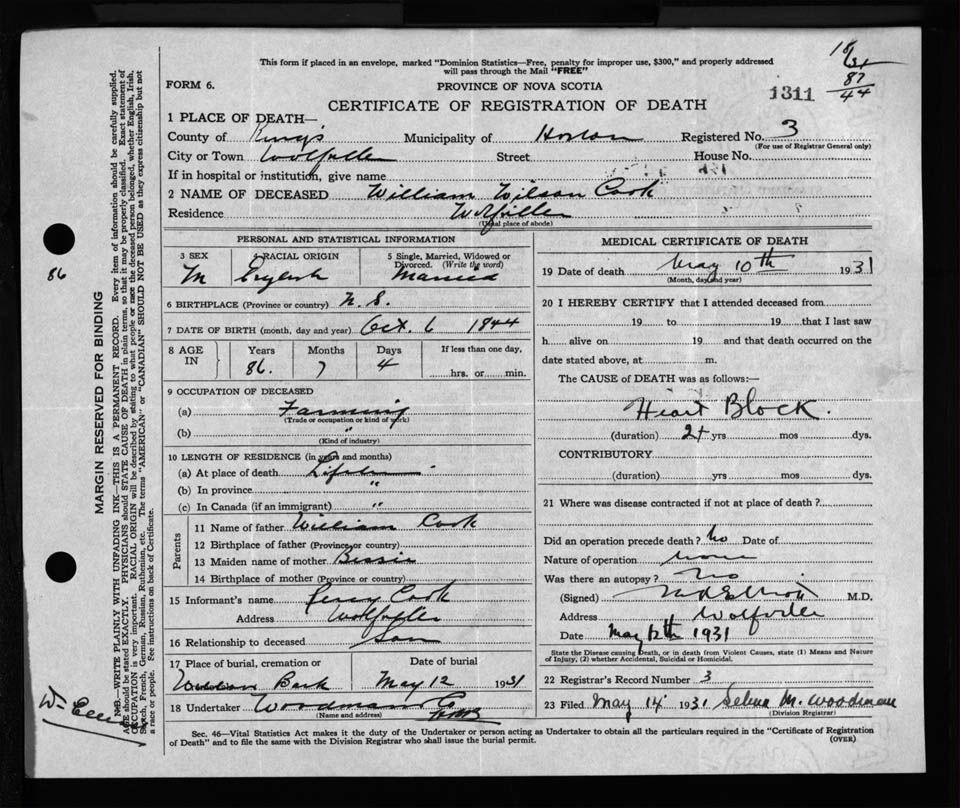 This form if placed in an envelope, marked "Dominion Statistics—Free, penalty for improper use, $300," and properly addressed
will pass through the Mail "FREE"
FORM 6.
PROVINCE OF NOVA SCOTIA
1311
87
44
CERTIFICATE OF REGISTRATION OF DEATH
1 PLACE OF DEATH—
County of King's Municipality of Horton Registered No. 3
(For use of Registrar General only)
City or Town Wolfville Street House No.
If in hospital or institution, give name
2 NAME OF DECEASED William Wilson Cook
Residence Wolfville
(Usual place of abode)
PERSONAL AND STATISTICAL INFORMATION
3 SEX 4 RACIAL ORIGIN 5 Single, Married, Widowed or
Divorced. (Write the word)
M English Married
6 BIRTHPLACE (Province or country) N. S.
7 DATE OF BIRTH (month, day and year) Oct. 6 1844
8 AGE IN Years Months Days If less than one day,
86. 7 4 hrs. or min.
9 OCCUPATION OF DECEASED
(a) Farming
(Trade or occupation or kind of work)
(b) "
(Kind of industry)
10 LENGTH OF RESIDENCE (in years and months)
(a) At place of death
(b) In province "
(c) In Canada (if an immigrant) "
Parents
11 Name of father William Cook
12 Birthplace of father (Province or country)
13 Maiden name of mother Bessie
14 Birthplace of mother (Province or country)
15 Informant's name Percy Cook
Address Wolfville
16 Relationship to deceased Son
17 Place of burial, cremation or Date of burial
Bank May 12 1931
18 Undertaker Woodman
(Name and address)
MEDICAL CERTIFICATE OF DEATH
19 Date of death May 10th 1931
(Month, day and year)
20 I HEREBY CERTIFY that I attended deceased from
19 to 19 that I last saw
h alive on 19 and that death occurred on the
date stated above, at m.
The CAUSE of DEATH was as follows:—
Heart Block.
(duration) 2+ yrs mos dys.
CONTRIBUTORY
(duration) yrs mos dys.
21 Where was disease contracted if not at place of death?
Did an operation precede death? no Date of
Nature of operation none
Was there an autopsy? no
(Signed) M.D.
Address Wolfville
Date May 12th 1931
State the Disease causing Death, or in death from Violent Causes, state (1) Means and Nature
of Injury, (2) whether Accidental, Suicidal or Homicidal.
22 Registrar's Record Number 3
23 Filed May 14 1931 Selina M. Woodman
(Division Registrar)
Sec. 46—Vital Statistics Act makes it the duty of the Undertaker or person acting as Undertaker to obtain all the particulars required in the "Certificate of Registration
of Death" and to file the same with the Division Registrar who shall issue the burial permit.
(OVER)
86
MARGIN RESERVED FOR BINDING
N.B.—WRITE PLAINLY WITH UNFADING INK—THIS IS A PERMANENT RECORD. Every item of information should be carefully supplied.
AGE should be stated EXACTLY. PHYSICIANS should STATE CAUSE OF DEATH in plain terms, so that it may be properly classified. Exact statement of
OCCUPATION is very important. RACIAL ORIGIN will be described by stating to what people or race the deceased person belonged, whether English, Irish,
Scotch, French, German, Russian, Ruthenian, etc. The terms "AMERICAN" or "CANADIAN" SHOULD NOT BE USED as they express citizenship but not
a race or people. See instructions on back of Certificate.